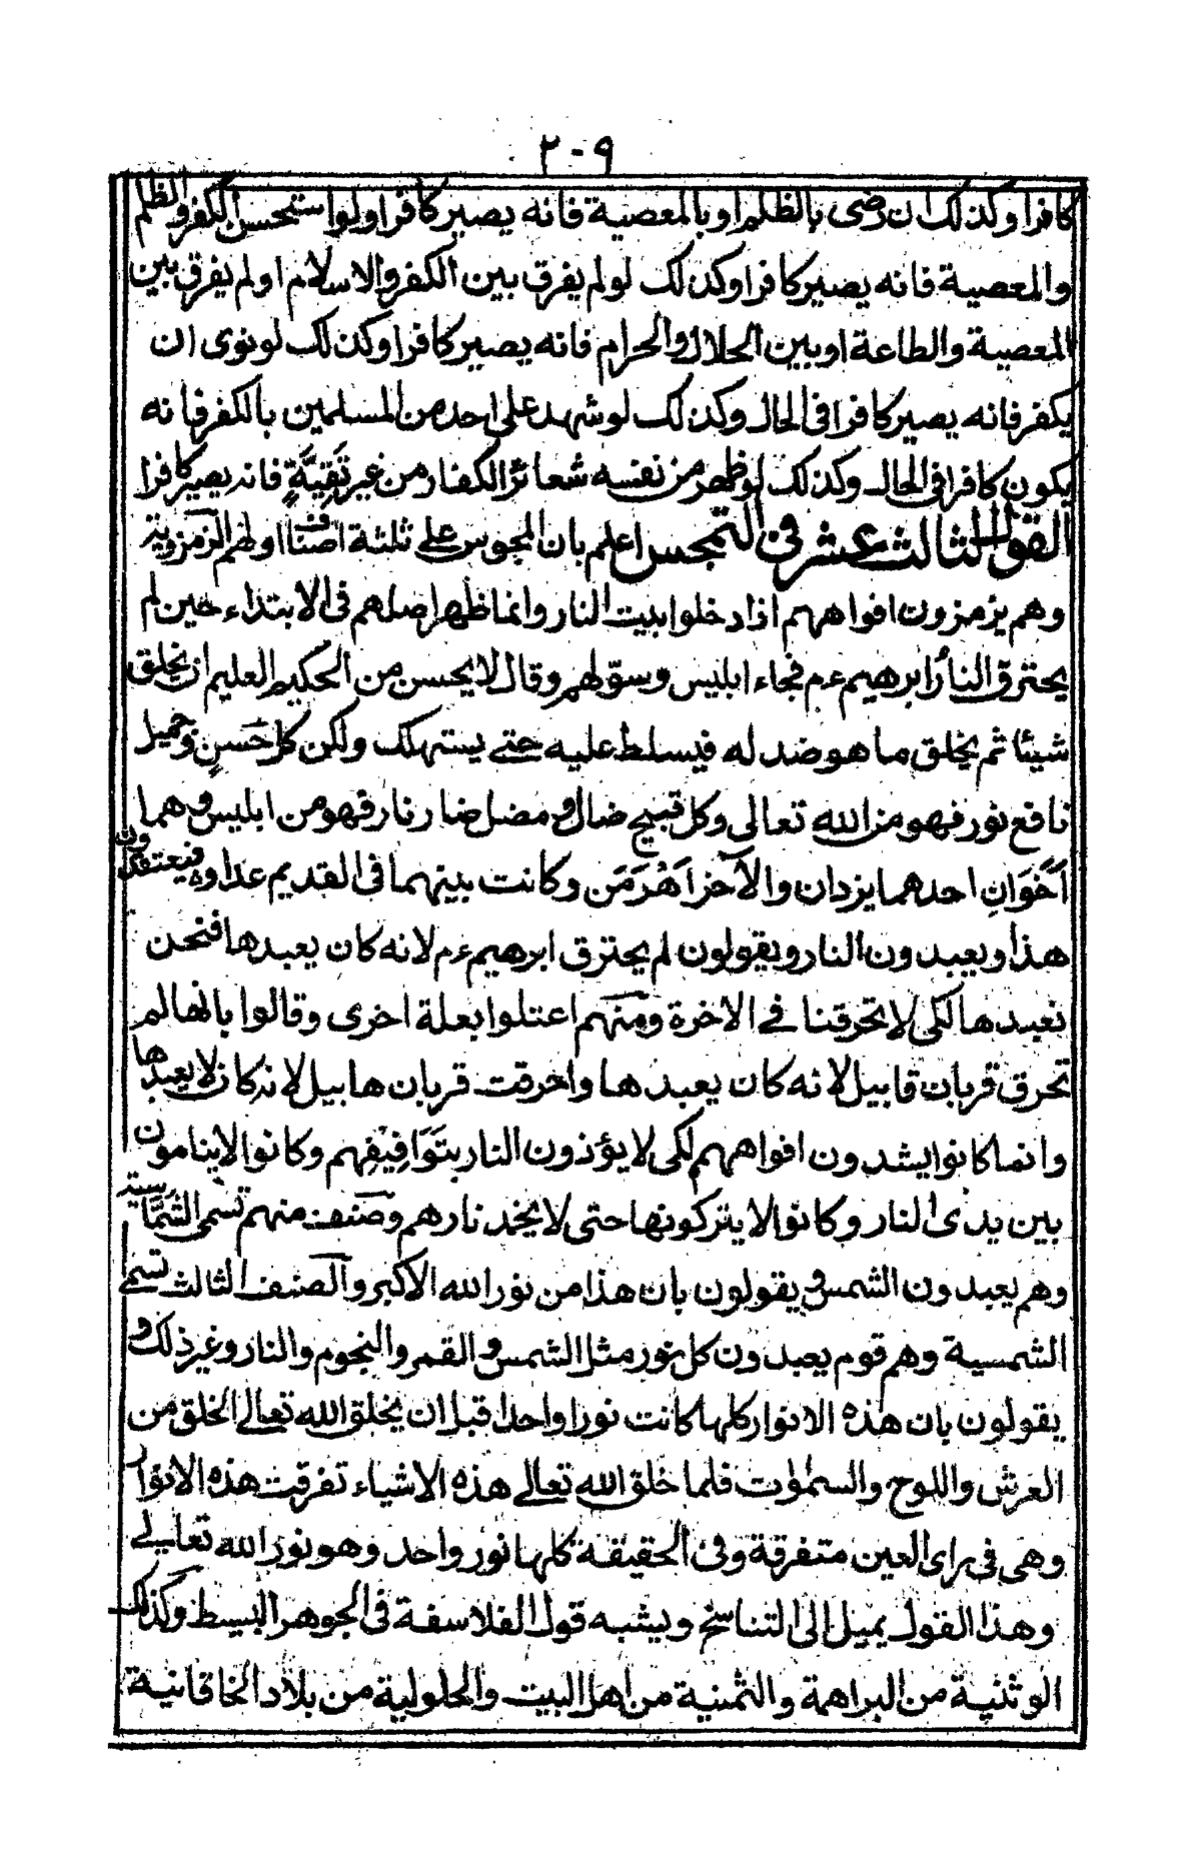 ٢٠٩
كافرا وكذلك ان رضى بالظلم او بالمعصية فانه يصير كافرا ولو استحسن الكفر والظلم
والمعصية فانه يصير كافرا وكذلك لو لم يفرق بين الكفر والاسلام او لم يفرق بين
المعصية والطاعة او بين الحلال والحرام فانه يصير كافرا وكذلك لو نوى ان
يكفر فانه يصير كافرا فى الحال وكذلك لو شهد على احد من المسلمين بالكفر فانه
يكون كافرا فى الحال وكذلك لو ظهر من نفسه شعائر الكفار من غير تَقِيَّةٍ فانه يصير كافرا
القول الثالث عشر فى التمجس اعلم بان المجوس على ثلثة اصناف اولهم الزمزوية
وهم يزمزون افواههم اذا دخلوا بيت النار وانما ظهر اصلهم فى الابتداء حين لم
يحترق النار ابرهيم عم فجاء ابليس وسوّل لهم وقال لا يحسن من الحكيم العليم ان يخلق
شيئا ثم يخلق ما هو ضد له فيسلط عليه حتى يستهلك ولكن كل حَسنٍ وجميل
نافع نور فهو من الله تعالى وكل قبيح ضال ومضل ضار نار فهو من ابليس وهما
اَخَوَانِ احدهما يزدان والآخر اَهْرَمَن وكانت بينهما فى القديم عداوة فيعتقدون
هذا ويعبدون النار ويقولون لم يحترق ابرهيم عم لانه كان يعبدها فنحن
نعبدها لكى لا تحرقنا فى الاخرة ومنهم اعتلوا بعلة اخرى وقالوا بانها لم
تحرق قربان قابيل لانه كان يعبدها واحرقت قربان هابيل لانه كان لا يعبدها
وانما كانوا يشدون افواههم لكى لا يؤذون النار بِتَوَافِيْفِهم وكانوا لا ينامون
بين يدى النار وكانوا لا يتركونها حتى لا يخمد نارهم وصنف منهم تسمى الشَّمَّاسية
وهم يعبدون الشمس ويقولون بان هذا من نور الله الاكبر والصنف الثالث تسمى
الشمسية وهم قوم يعبدون كل نور مثل الشمس والقمر والنجوم والنار وغير ذلك و
يقولون بان هذه الانوار كلها كانت نورا واحدا قبل ان يخلق الله تعالى الخلق من
العرش واللوح والسموات فلما خلق الله تعالى هذه الاشياء تفرقت هذه الانوار
وهى فى راى العين متفرقة وفى الحقيقة كلها نور واحد وهو نور الله تعالى
وهذا القول يميل الى التناسخ ويشبه قول الفلاسفة فى الجوهر البسيط وكذلك
الوثنية من البراهمة والثمنية من اهل البيت والحلولية من بلاد الخاقانية